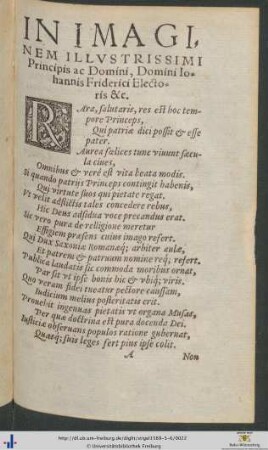 IN IMAGI,
NEM ILLVSTRISSIMI
Principis ac Domini, Domini Io-
hannis Friderici Electo-
ris &c.
RAra, salutaris, res est hoc tem-
pore Princeps,
Qui patriæ dici possit & esse
pater.
Aurea fœlices tunc viuunt sæcu-
la ciues,
Omnibus & verè est vita beata modis.
Si quando patrijs Princeps contingit habenis,
Qui virtute suos qui pietate regat.
Vt velit adflictis tales concedere rebus,
Hic Deus adsidua voce precandus erat.
Sic vero pura de religione meretur
Effigiem præsens cuius imago refert.
Qui Dux Saxoniæ Romanæq; arbiter aulæ,
Et patrem & patruum nomine req; refert.
Publica laudatis sic commoda moribus ornat,
Par sit vt ipse bonis hic & vbiq; viris.
Quo veram fidei tueatur pectore caussam,
Iudicium melius posteritatis erit.
Prouehit ingenuas pietati vt organa Musas,
Per quæ doctrina est pura docenda Dei.
Iusticiæ obseruans populos ratione gubernat,
Quasq; suis leges fert pius ipse colit.
A
Non
http://dl.ub.uni-freiburg.de/diglit/
© Universitätsbibliothek Freiburg